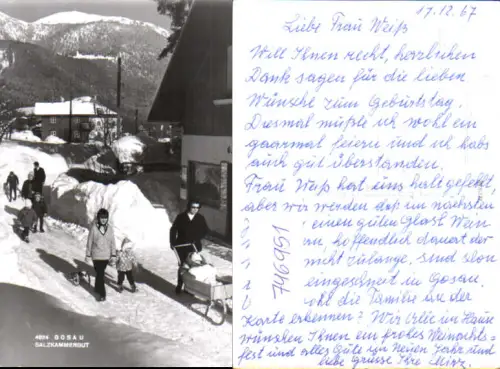 4804 GOSAU
SALZKAMMERGUT
17.12.67
Liebe Frau Weiß
Will Ihnen recht, herzlichen
Dank sagen für die lieben
Wünsche zum Geburtstag.
Diesmal mußte ich wohl ein
paarmal feiern und ich habs
auch gut überstanden.
Frau Weiß hat uns halt gefehlt
aber wir werden daß im nächsten
einen guten Glasl Wein
hoffendlich dauert der
nicht zulange, sind schon
eingeschneit in Gosau.
die Familie an der
Karte erkennen? Wir alle im Hause
wünschen Ihnen ein frohes Weinachts=
fest und alles Gute im Neuen Jahr und
liebe Grüsse Ihre Mirz.
746951